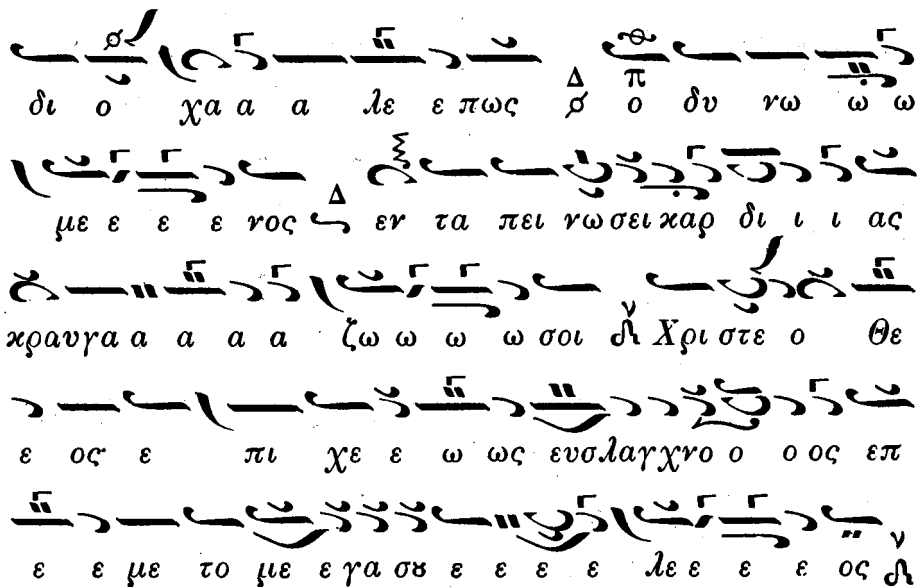 δι ο χα α α λε ε πως Δ ο δυ νω ω ω
με ε ε ε νος Δ εν τα πει νω σει καρ δι ι ι ας
κραυγα α α α α ζω ω ω ω σοι ν Χρι στε ο Θε
ε ος ε πι χε ε ω ως ευσλαγχνο ο ο ος επ
ε ε με το με ε γα σȣ ε ε ε ε λε ε ε ε ος ν